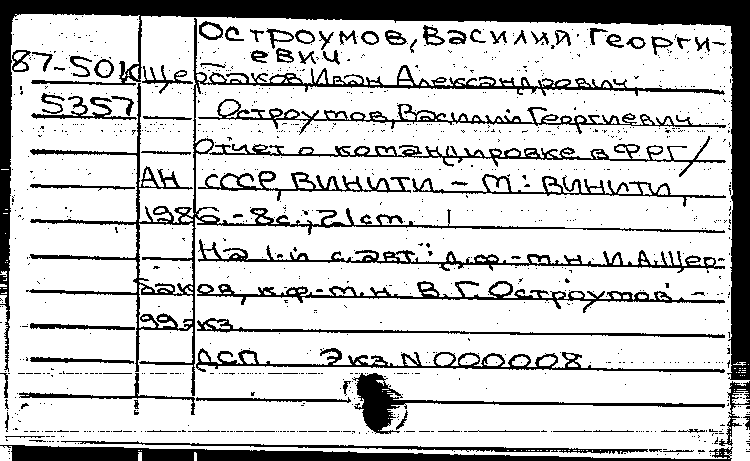 Остроумов, Василий Георги-
евич.
87-50К Щербаков, Иван Александрович,
5357 Остроумов, Василий Георгиевич
Отчет о командировке в ФРГ/
АН СССР, ВИНИТИ. - М.: ВИНИТИ,
1986.- 8с.; 21 cm.
На 1-й с. авт.: д.ф.-м.н. И.А.Щер-
баков, к.ф.-м.н. В.Г.Остроумов.-
99экз.
ДСП. Экз. N 000008.